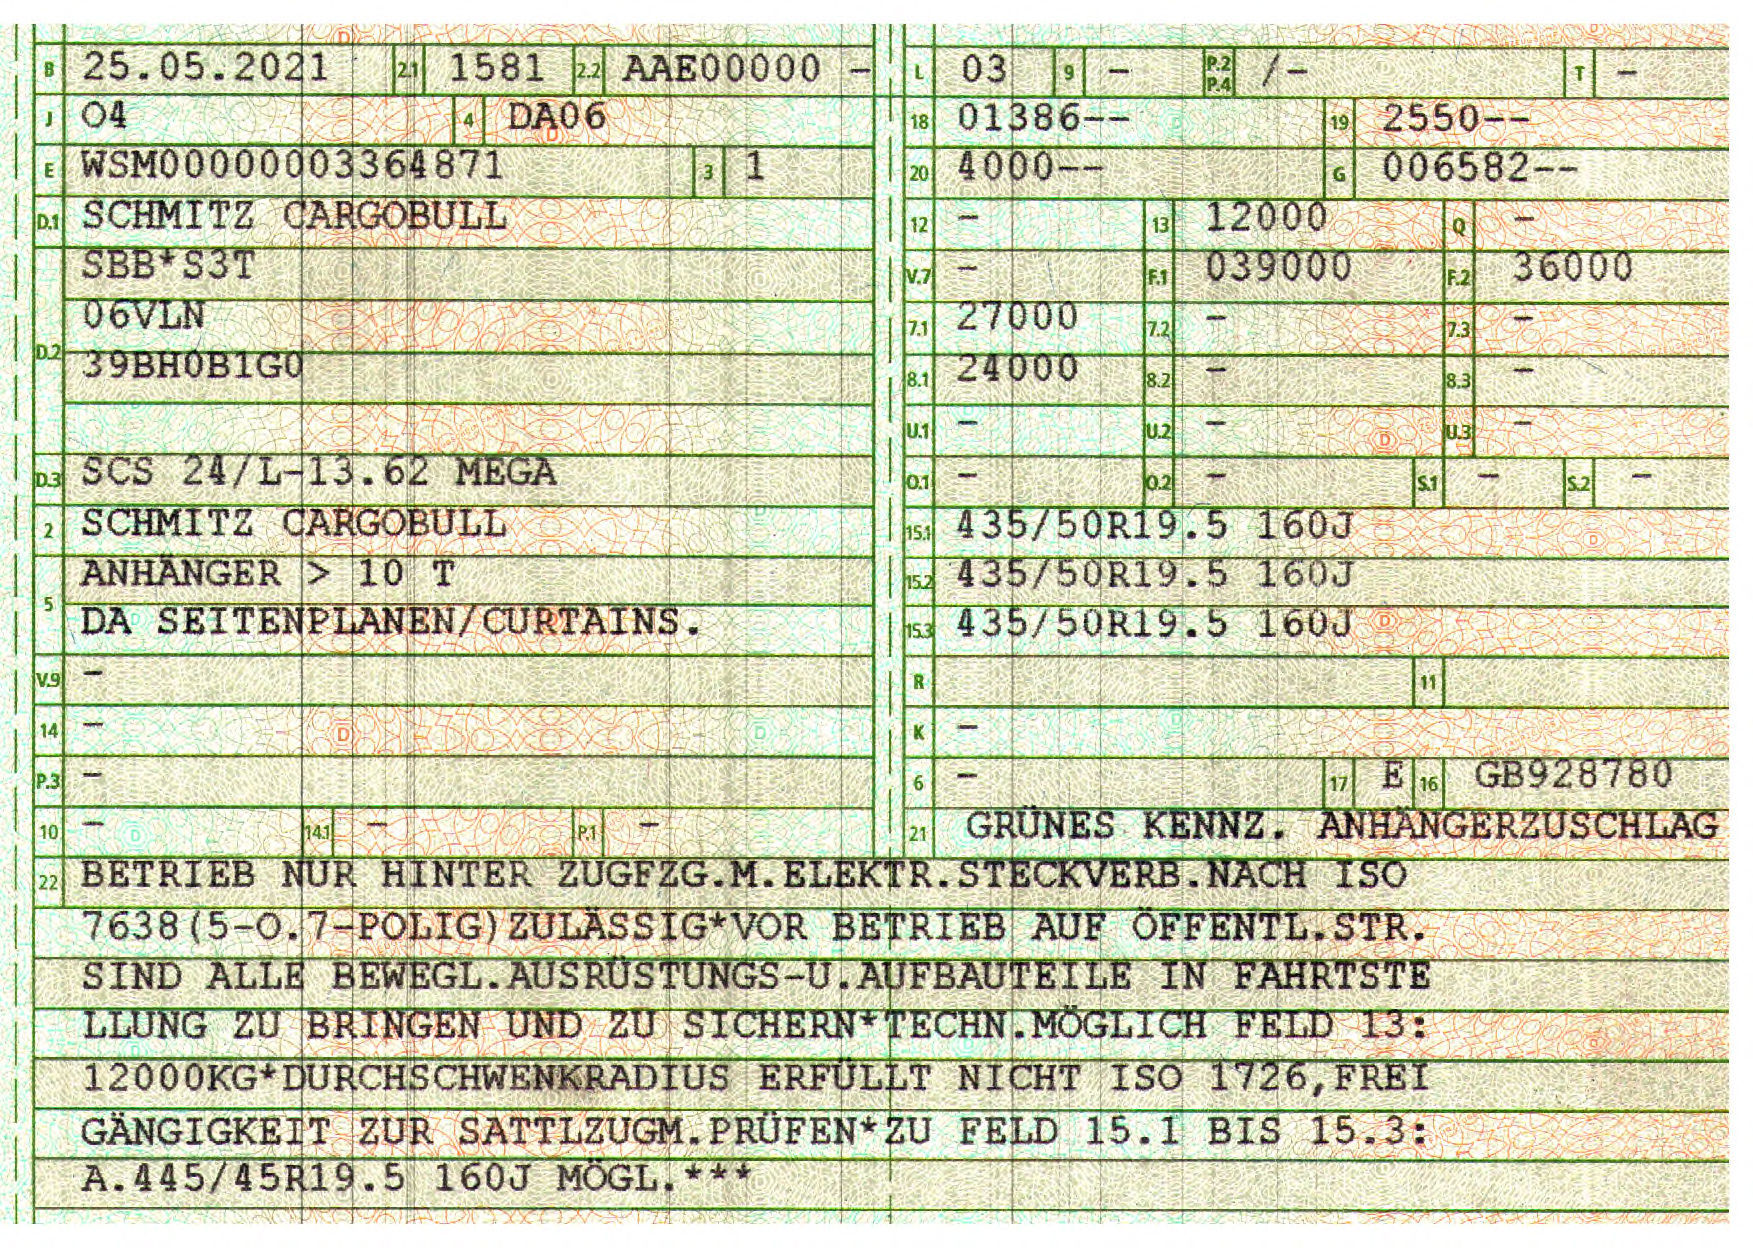 B 25.05.2021 2.1 1581 2.2 AAE00000 -
J 04 4 DA06
E WSM00000003364871 3 1
D.1 SCHMITZ CARGOBULL
SBB*S3T
06VLN
D.2
39BH0B1G0
D.3 SCS 24/L-13.62 MEGA
2 SCHMITZ CARGOBULL
ANHÄNGER > 10 T
5
DA SEITENPLANEN/CURTAINS.
V.9 -
14 -
P.3 -
10 - 14.1 - P.1 -
L 03 9 - P.2 P.4 /- T -
18 01386-- 19 2550--
20 4000-- G 006582--
12 - 13 12000 Q -
V.7 - F.1 039000 F.2 36000
7.1 27000 7.2 - 7.3 -
8.1 24000 8.2 - 8.3 -
U.1 - U.2 - U.3 -
O.1 - O.2 - S.1 - S.2 -
15.1 435/50R19.5 160J
15.2 435/50R19.5 160J
15.3 435/50R19.5 160J
R 11
K -
6 - 17 E 16 GB928780
21 GRÜNES KENNZ. ANHÄNGERZUSCHLAG
22 BETRIEB NUR HINTER ZUGFZG.M.ELEKTR.STECKVERB.NACH ISO
7638(5-O.7-POLIG)ZULÄSSIG*VOR BETRIEB AUF ÖFFENTL.STR.
SIND ALLE BEWEGL.AUSRÜSTUNGS-U.AUFBAUTEILE IN FAHRTSTE
LLUNG ZU BRINGEN UND ZU SICHERN*TECHN.MÖGLICH FELD 13:
12000KG*DURCHSCHWENKRADIUS ERFÜLLT NICHT ISO 1726,FREI
GÄNGIGKEIT ZUR SATTLZUGM.PRÜFEN*ZU FELD 15.1 BIS 15.3:
A.445/45R19.5 160J MÖGL.***